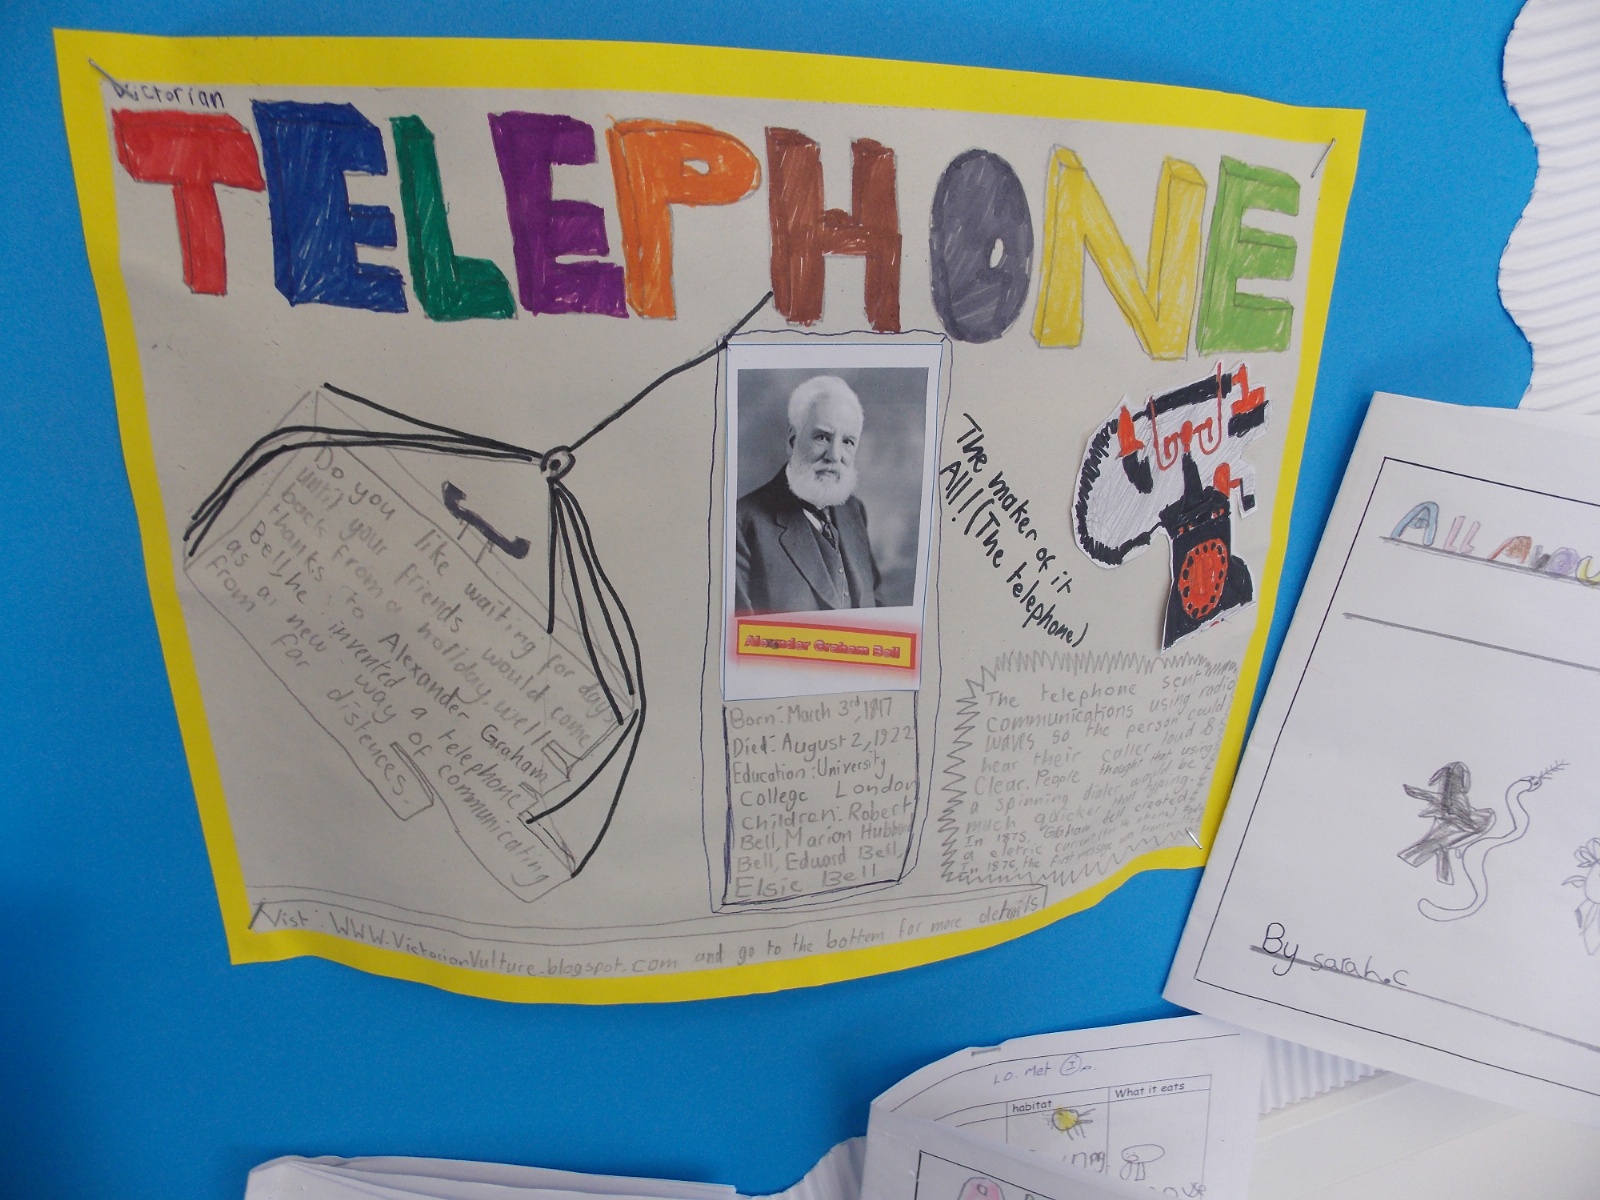 Victorian
TELEPHONE
Do you like waiting for days
until your friends would come
back from a holiday, well
thanks to Alexander Graham
Bell, he invented a telephone
as a new way of communicating
from far distences.
Alexander Graham Bell
Born: March 3rd, 1847
Died: August 2, 1922
Education: University
College London
Children: Robert
Bell, Marian Hubbard
Bell, Edward Bell,
Elsie Bell
The maker of it
All! (The telephone)
The telephone sent
communications using radio
waves so the person could
hear their caller loud &
Clear. People thought that using
a spinning dialer would be
much quicker that typing.
In 1875, Graham Bell created
a eletric current
In 1876, the first message was
Vist: WWW.VictorianVulture.blogspot.com and go to the bottom for more details
All Abou
By sarah.c
L.O. met I
habitat
What it eats